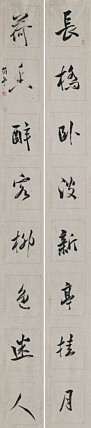 長橋卧波新亭挂月
荷香醉客柳色迷人